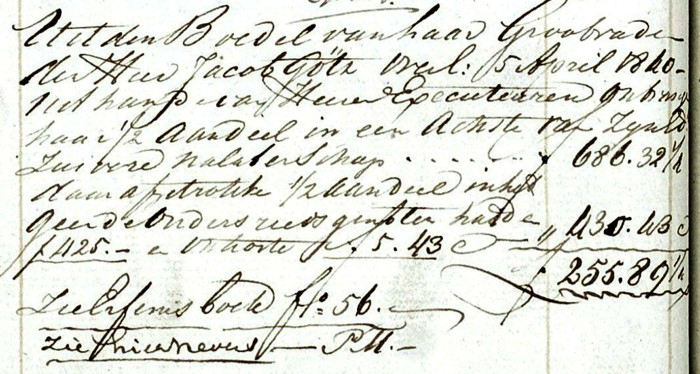 Uit den Boedel van haar Grootvader
der Heer Jacob Götz Overl: 5 April 1840 -
uit hande van Heeren Executeuren ontving
haar 1/2 Aandeel in een Achtste van Zynde
Zuivere nalatenschap . . . . . . . " 686.32 1/2
daar afgetrokken 1/2 aandeel in hetgeen
de Ouders reeds genoten hadde
f 425.- en onkosten f 5.43 " 430.43
255.89 1/2
Zie Erfenis boek fo: 56.
Zie hier nevens — P.M.-